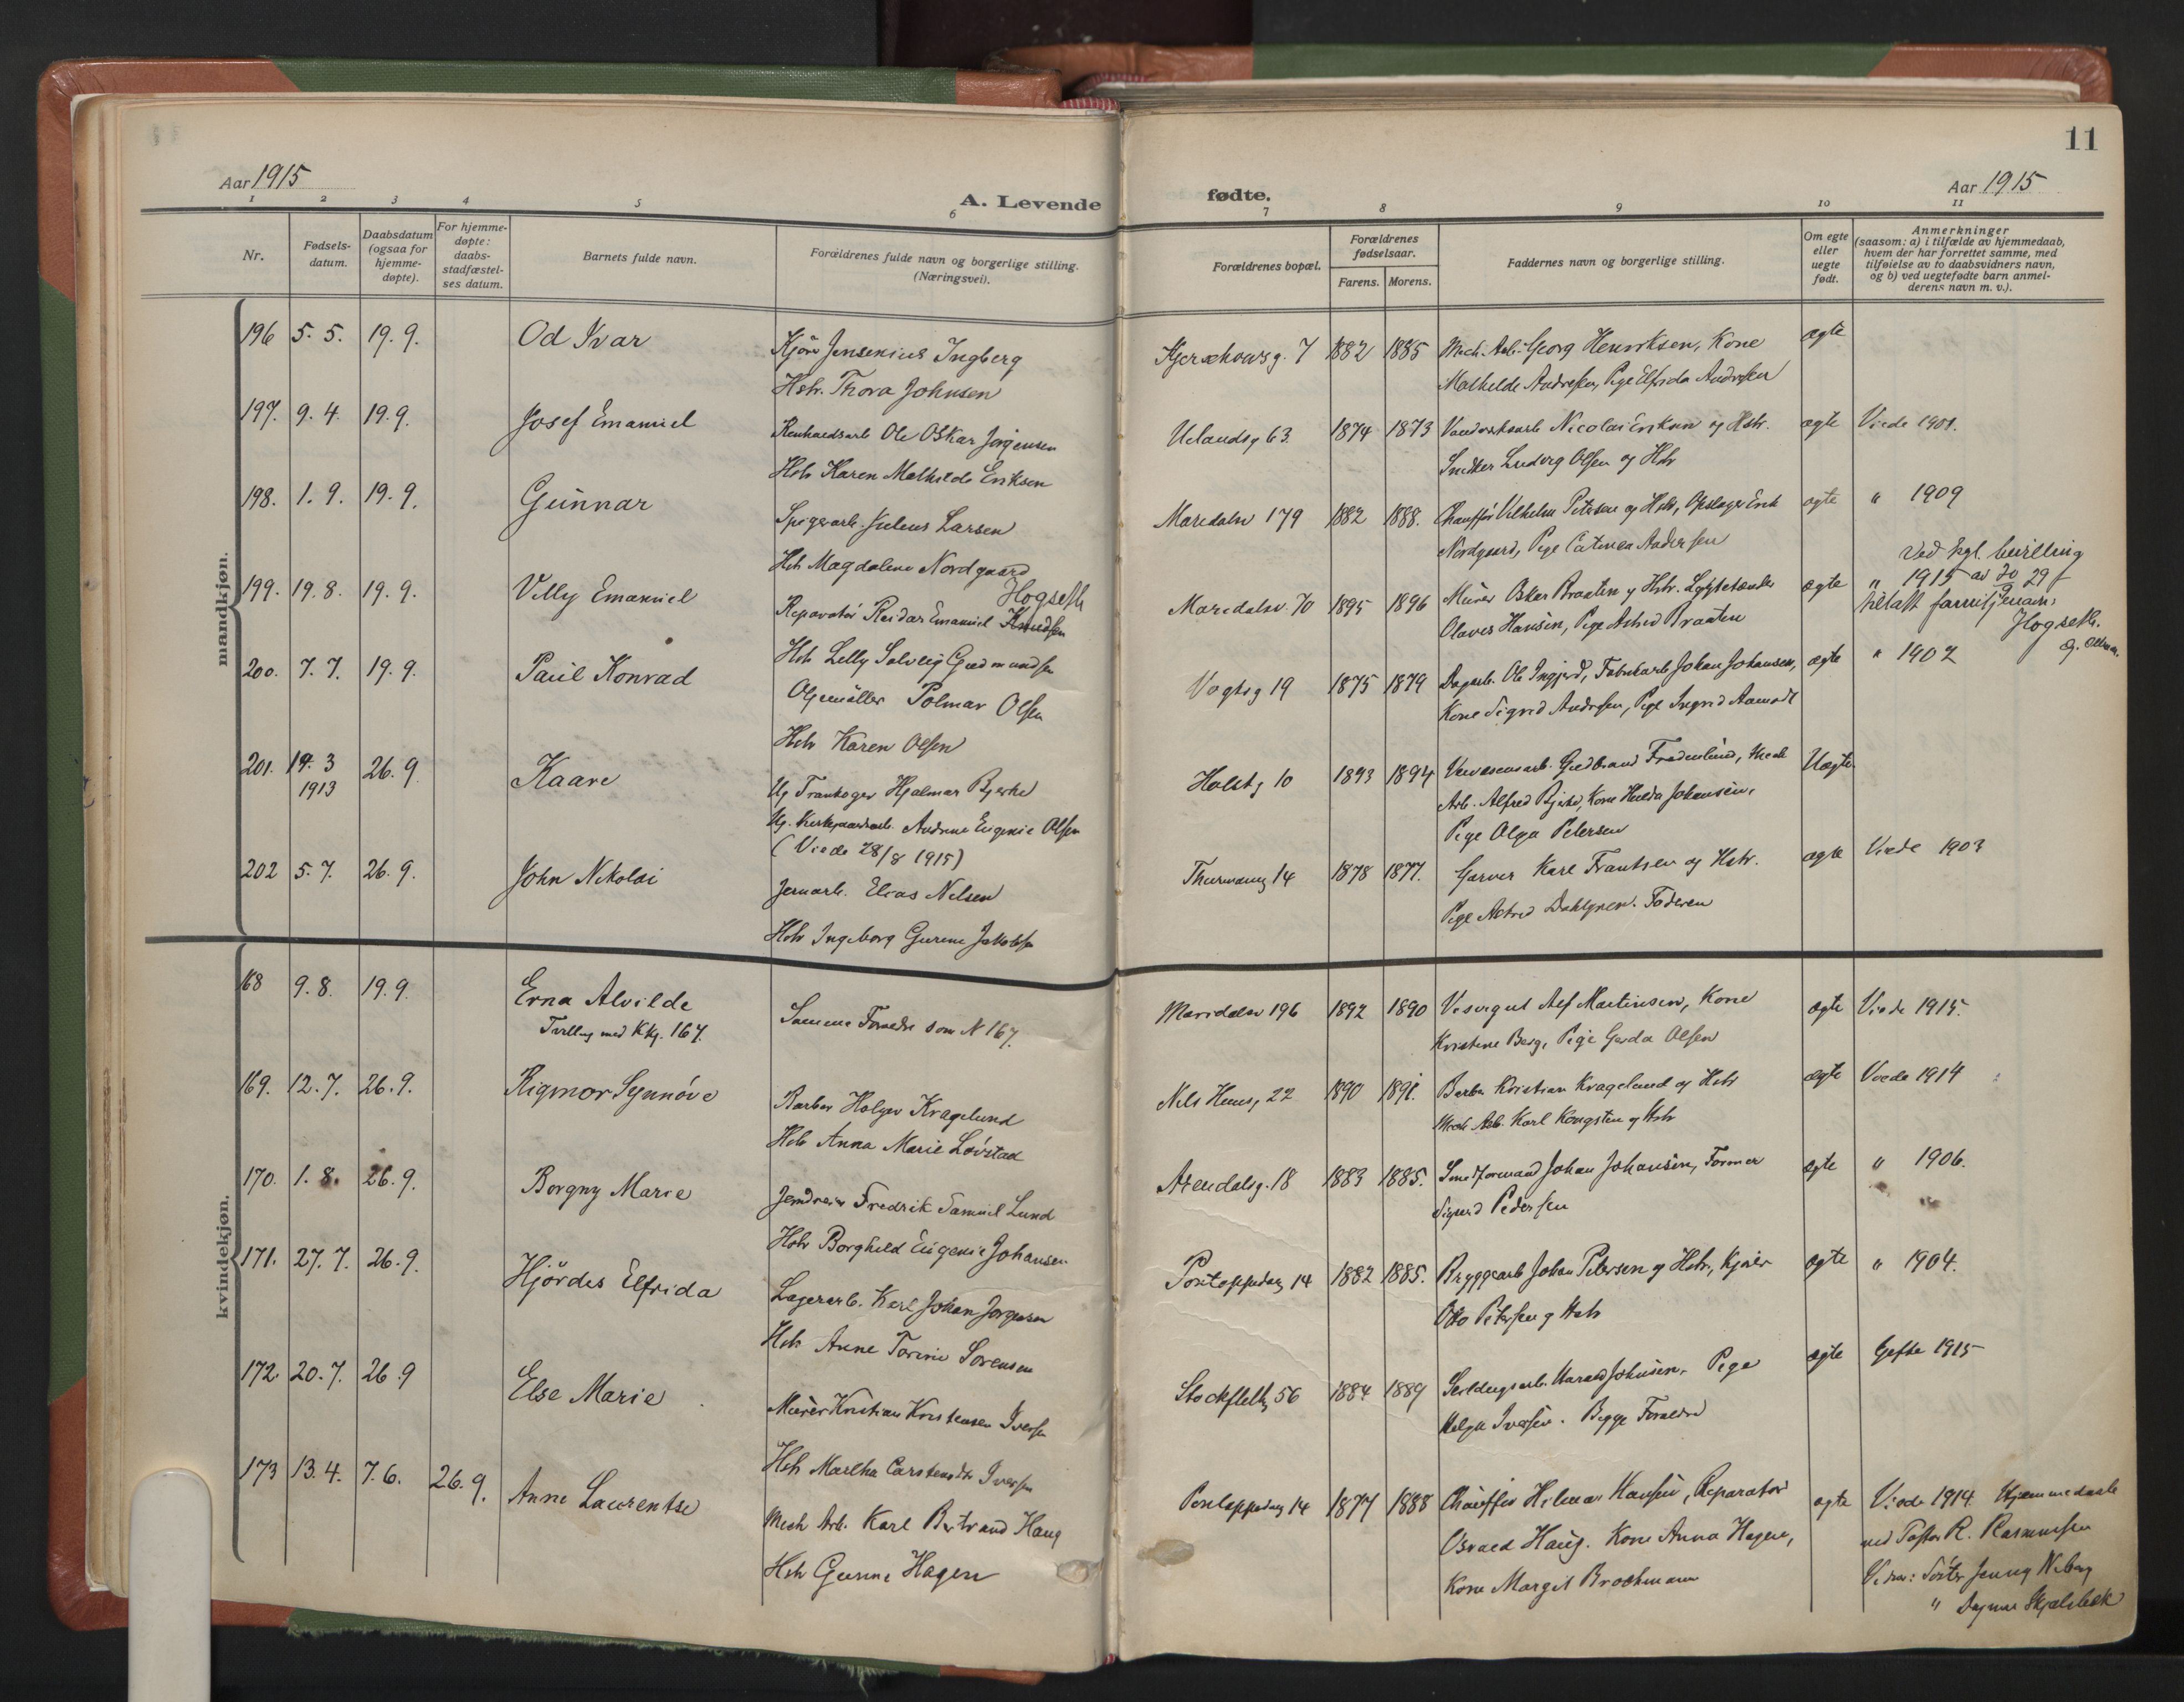 11
Aar 1915
A. Levende
fødte.
Aar 1915
1 2 3 4 5 6 7 8 9 10 11
Nr.
Fødsels-
datum.
Daabsdatum
(ogsaa for
hjemme-
døpte).
For hjemme-
døpte:
daabs-
stadfæstel-
ses datum.
Barnets fulde navn.
Forældrenes fulde navn og borgerlige stilling.
(Næringsvei).
Forældrenes bopæl.
Forældrenes
fødselsaar.
Farens. Morens.
Faddernes navn og borgerlige stilling.
Om egte
eller
uegte
født.
Anmerkninger
(saasom: a) i tilfælde av hjemmedaab,
hvem der har forrettet samme, med
tilføielse av to daabsvidners navn,
og b) ved uegtefødte barn anmel-
derens navn m. v.).
mandkjøn.
196 5. 5. 19. 9. Od Ivar
Kjører Jensenius Ingberg
Hstr. Thora Johnsen
7 1882 1885 Mek. Arb. Georg Henriksen, Kone
Mathilde Andresen, Pige Elfrida Andresen
ægte
197. 9. 4. 19. 9. Josef Emanuel
Renholdsarb Ole Oskar Jørgensen
Hstr Karen Mathilde Eriksen
Uelandsg 63. 1874 1873 Nicolai Eriksen og Hstr.
Snedker Ludvig Olsen og Hstr
ægte Viede 1901.
198. 1. 9. 19. 9. Gunnar
Spigerarb. Julius Larsen
Hstr Magdalene Nordgaard
Maridalsv 179 1882 1888. Chauffør Vilhelm Petersen og Hstr, Opslager Erik
Nordgaard, Pige Catinca Andersen
ægte " 1909
199. 19. 8. 19. 9. Villy Emanuel
Hogseth
Reparatør Reidar Emanuel Knudsen
Hstr Lilly Solveig Gudmundsen
Maridalsv. 70 1895 1896 Murer Oskar Braaten og Hstr. Lygtetænder
Olaves Hansen, Pige Astrid Braaten
ægte " 1915
Ved kgl. bevilling
av 20/9 29
tillatt familjenavn:
Hogseth.
200. 7. 7. 19. 9. Paul Konrad
Oljemøller Polmar Olsen
Hstr Karen Olsen
Vogtsg 19 1875 1879 Dagarb. Ole Ingjerd, Fabrikarb Johan Johansen,
Kone Sigrid Andersen, Pige Ingrid Aamodt
ægte " 1902
201. 19. 3
1913
26. 9. Kaare
Ug. Trankoger Hjalmar Bjerke
Ug. Kirkegaardsarb. Andrine Eugenie Olsen
(Viede 28/8 1915)
Holstg 10 1893 1894 Gudbrand Fredenlund, Mek
Arb. Alfred Bjerke, Kone Hulda Johansen,
Pige Olga Petersen
Uægte
202 5. 7. 26. 9. John Nikolai
Jernarb. Elias Nilsen
Hstr Ingeborg Gurine Jakobsen
14 1878 1877. Garver Karl Frantsen og Hstr.
Pige Astrid Dahlgren. Faderen
ægte Viede 1903
kvindekjøn.
168 9. 8. 19. 9. Erna Alvilde
Tvilling med Kkj. 167.
Samme Forældre som N 167.
Maridalsv 196 1892 1890 Visergut Alf Martinsen, Kone
Kristine Berg, Pige Gerda Olsen
ægte Viede 1915.
169. 12. 7. 26. 9. Rigmor Synnöve
Barber Holger Kragelund
Hstr Anna Marie Lövstad
Nils Huusg 22 1890 1891. Barber Kristian Kragelund og Hstr
Mek Arb. Karl Kongsten og Hstr
ægte Viede 1914
170. 1. 8. 26. 9. Borgny Marie
Jerndreier Fredrik Samuel Lund
Hstr Borghild Eugenie Johansen
Arendalsg. 18 1883 1885. Smedformand Johan Johansen, Former
Sigurd Pedersen
ægte " 1906.
171. 27. 7. 26. 9. Hjördis Elfrida
Lagerarb. Karl Johan Jørgensen
Hstr Anne Torine Sørensen
14 1882 1885. Bryggearb Johan Petersen og Hstr, Kjører
Otto Petersen og Hstr
ægte " 1904.
172. 20. 7. 26. 9 Else Marie
Murer Kristian Kristensen Iversen
Hstr Martha Iversen
Stockflethg 56 1884 1889 Harald Johnsen, Pige
Helga Iversen. Begge Forældre
ægte Gifte 1915
173 13. 4. 7. 6. 26. 9. Anne Laurentse
Mech Arb. Karl Bertrand Haug
Hstr Gurine Hagen
14 1877 1888 Chauffør Hilmar Hansen, Reparatør
Osvald Haug. Kone Anna Hagen,
Kone Margit Brochmann
ægte Viede 1914. Hjemmedaab
ved Pastor R. Rasmussen
Vidner: Søster Jenny Niberg
" Dagmar Skjelsbek